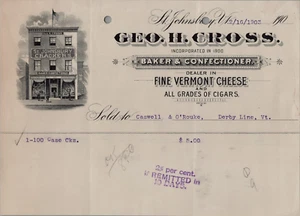 St. Johnsbury, Vt. 5/15/1902 190
GEO. H. CROSS,
INCORPORATED IN 1900
BAKER & CONFECTIONER.
DEALER IN
FINE VERMONT CHEESE
AND
ALL GRADES OF CIGARS.
Sold to Caswell & O'Rouke, Derby Line, Vt.
1-100 Case Cks. $ 5.00
per cent.
REMITTED in
DAYS